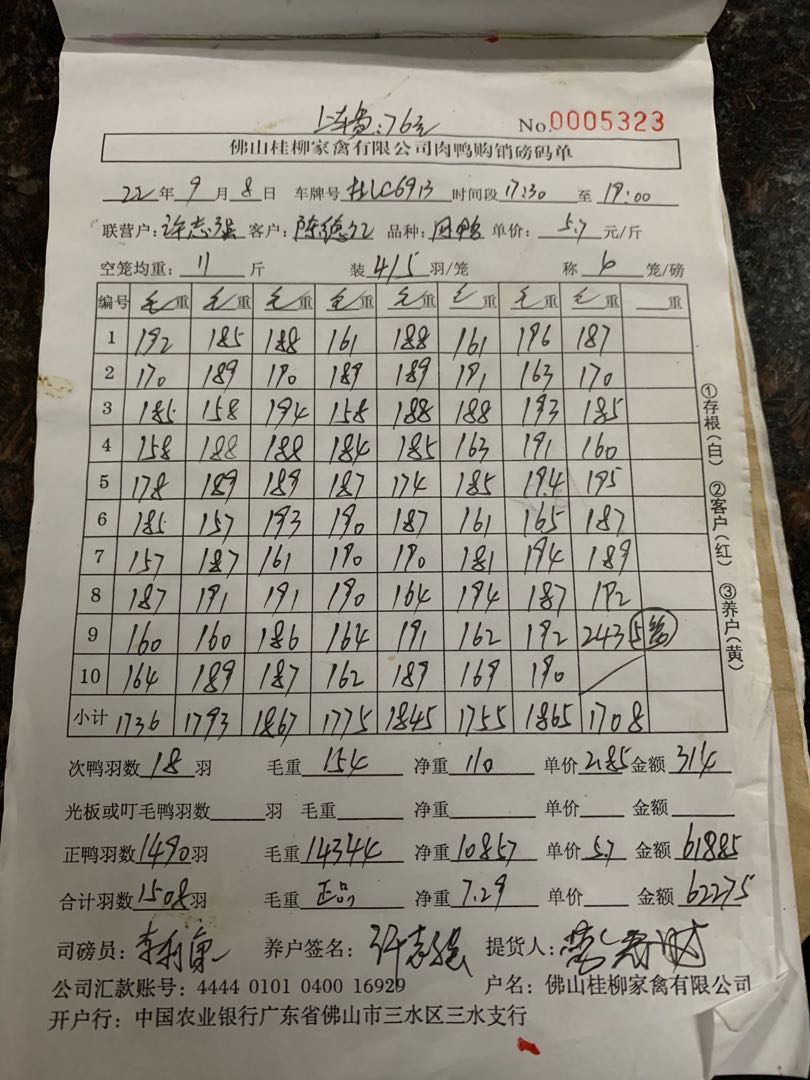 上车费:76元 No.0005323
佛山桂柳家禽有限公司肉鸭购销磅码单
22年9月8日 车牌号 桂LC6913 时间段17:30 至 19:00
联营户:许志强 客户:陈德 品种: 单价: 5.7 元/斤
空笼均重: 11 斤 装 4/5 羽/笼 称 6 笼/磅
编号 毛重 毛重 毛重 毛重 毛重 毛重 毛重 毛重 重
1 192 185 188 161 188 161 196 187
2 170 189 190 189 189 191 163 170
3 185 158 194 158 188 188 193 185
4 158 188 188 184 185 163 191 160
5 178 189 189 187 174 185 194 195
6 185 157 193 190 187 161 165 187
7 157 187 161 190 190 181 194 189
8 187 191 191 190 164 194 187 192
9 160 160 186 164 191 162 192 243 5笼
10 164 189 187 162 189 169 190
小计 1736 1793 1867 1775 1845 1755 1865 1708
次鸭羽数 18 羽 毛重 154 净重 110 单价 2.85 金额 314
光板或叮毛鸭羽数 羽 毛重 净重 单价 金额
正鸭羽数1490羽 毛重 14344 净重10857 单价 5.7 金额 61885
合计羽数1508羽 毛重 正品 净重 7.29 单价 金额 62275
司磅员: 养户签名: 许志强 提货人:
公司汇款账号: 4444 0101 0400 16929 户名: 佛山桂柳家禽有限公司
开户行: 中国农业银行广东省佛山市三水区三水支行
①存根(白) ②客户(红) ③养户(黄)